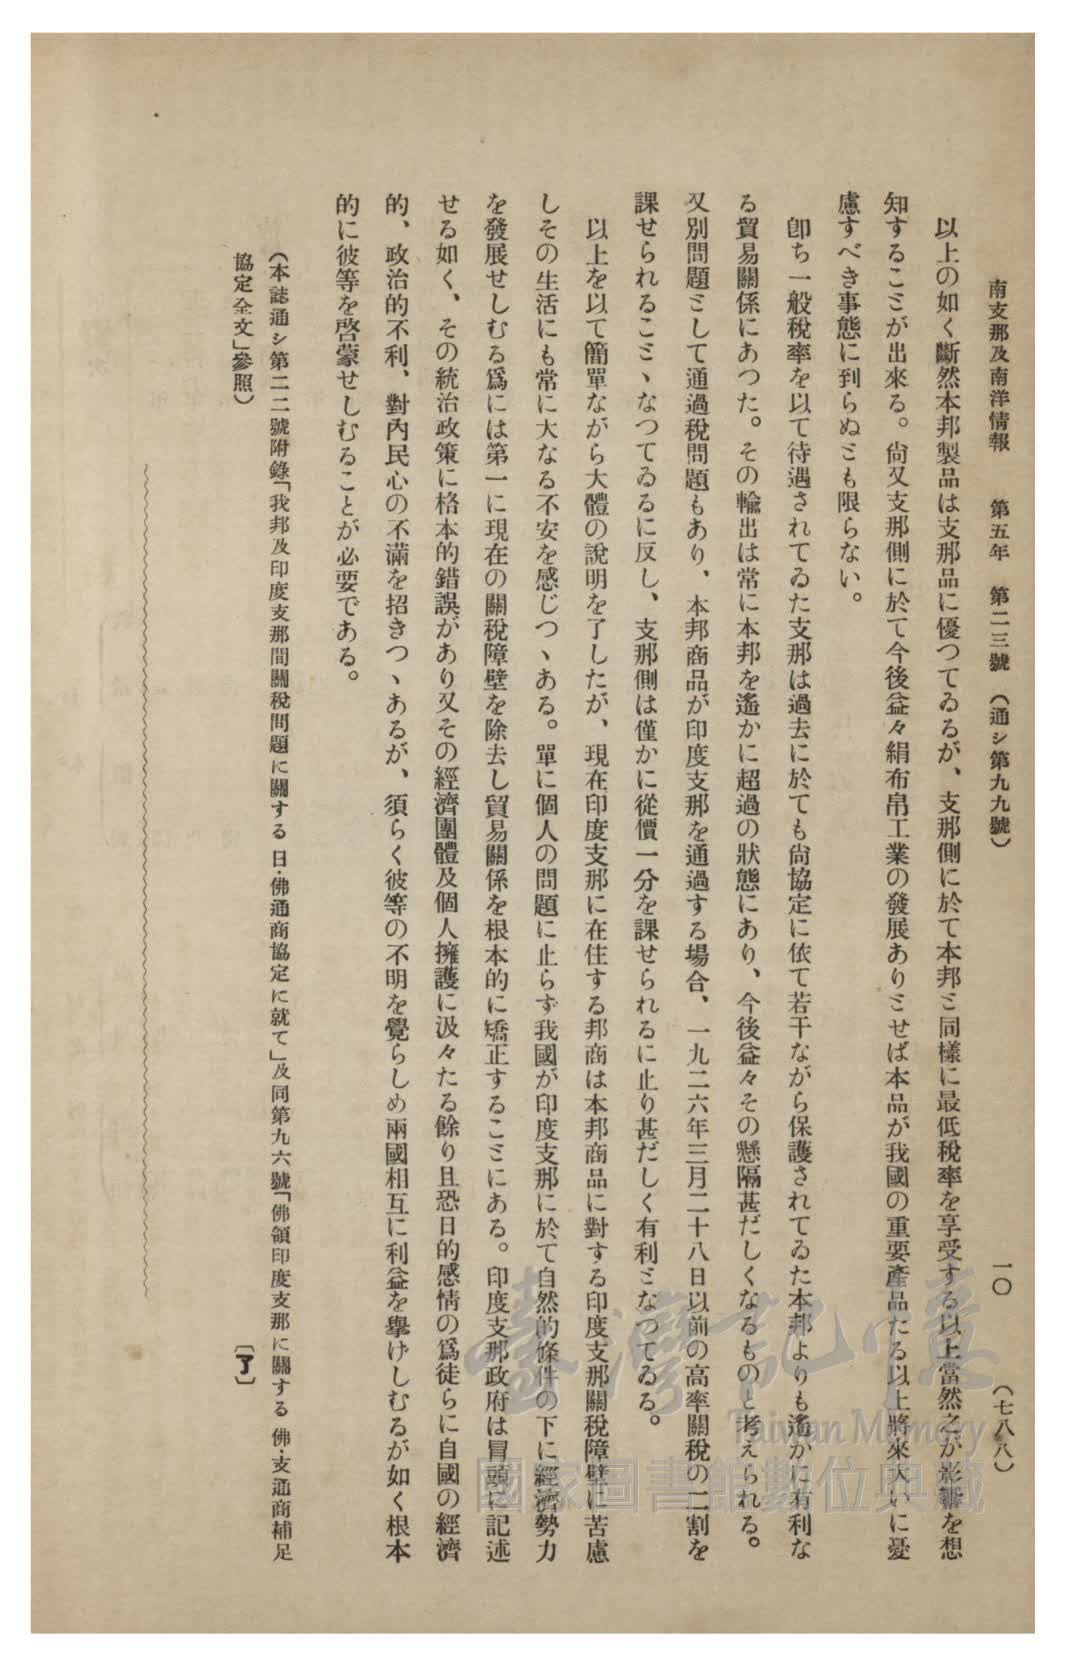 南支那及南洋情報　第五年　第二三號　（通シ第九九號）　一〇　（七八八）
以上の如く斷然本邦製品は支那品に優つてゐるが、支那側に於て本邦と同樣に最低稅率を享受する以上當然之が影響を想
知することが出來る。尙又支那側に於て今後益々絹布帛工業の發展ありとせば本品が我國の重要產品たる以上將來大いに憂
慮すべき事態に到らぬとも限らない。
卽ち一般稅率を以て待遇されてゐた支那は過去に於ても尙協定に依て若干ながら保護されてゐた本邦よりも遙かに有利な
る貿易關係にあつた。その輸出は常に本邦を遙かに超過の狀態にあり、今後益々その懸隔甚だしくなるものと考えられる。
又別問題として通過稅問題もあり、本邦商品が印度支那を通過する場合、一九二六年三月二十八日以前の高率關稅の二割を
課せられることヽなつてゐるに反し、支那側は僅かに從價一分を課せられるに止り甚だしく有利となつてゐる。
以上を以て簡單ながら大體の說明を了したが、現在印度支那に在住する邦商は本邦商品に對する印度支那關稅障壁に苦慮
しその生活にも常に大なる不安を感じつヽある。單に個人の問題に止らず我國が印度支那に於て自然的條件の下に經濟勢力
を發展せしむる爲には第一に現在の關稅障壁を除去し貿易關係を根本的に矯正することにある。印度支那政府は冒頭に記述
せる如く、その統治政策に格本的錯誤があり又その經濟團體及個人擁護に汲々たる餘り且恐日的感情の爲徒らに自國の經濟
的、政治的不利、對內民心の不滿を招きつヽあるが、須らく彼等の不明を覺らしめ兩國相互に利益を擧げしむるが如く根本
的に彼等を啓蒙せしむることが必要である。
（本誌通シ第二二號附錄「我邦及印度支那間關稅問題に關する日・佛通商協定に就て」及同第九六號「佛領印度支那に關する佛・支通商補足
協定全文」參照）
〔了〕
臺灣記憶
Taiwan Memory
國家圖書館數位典藏